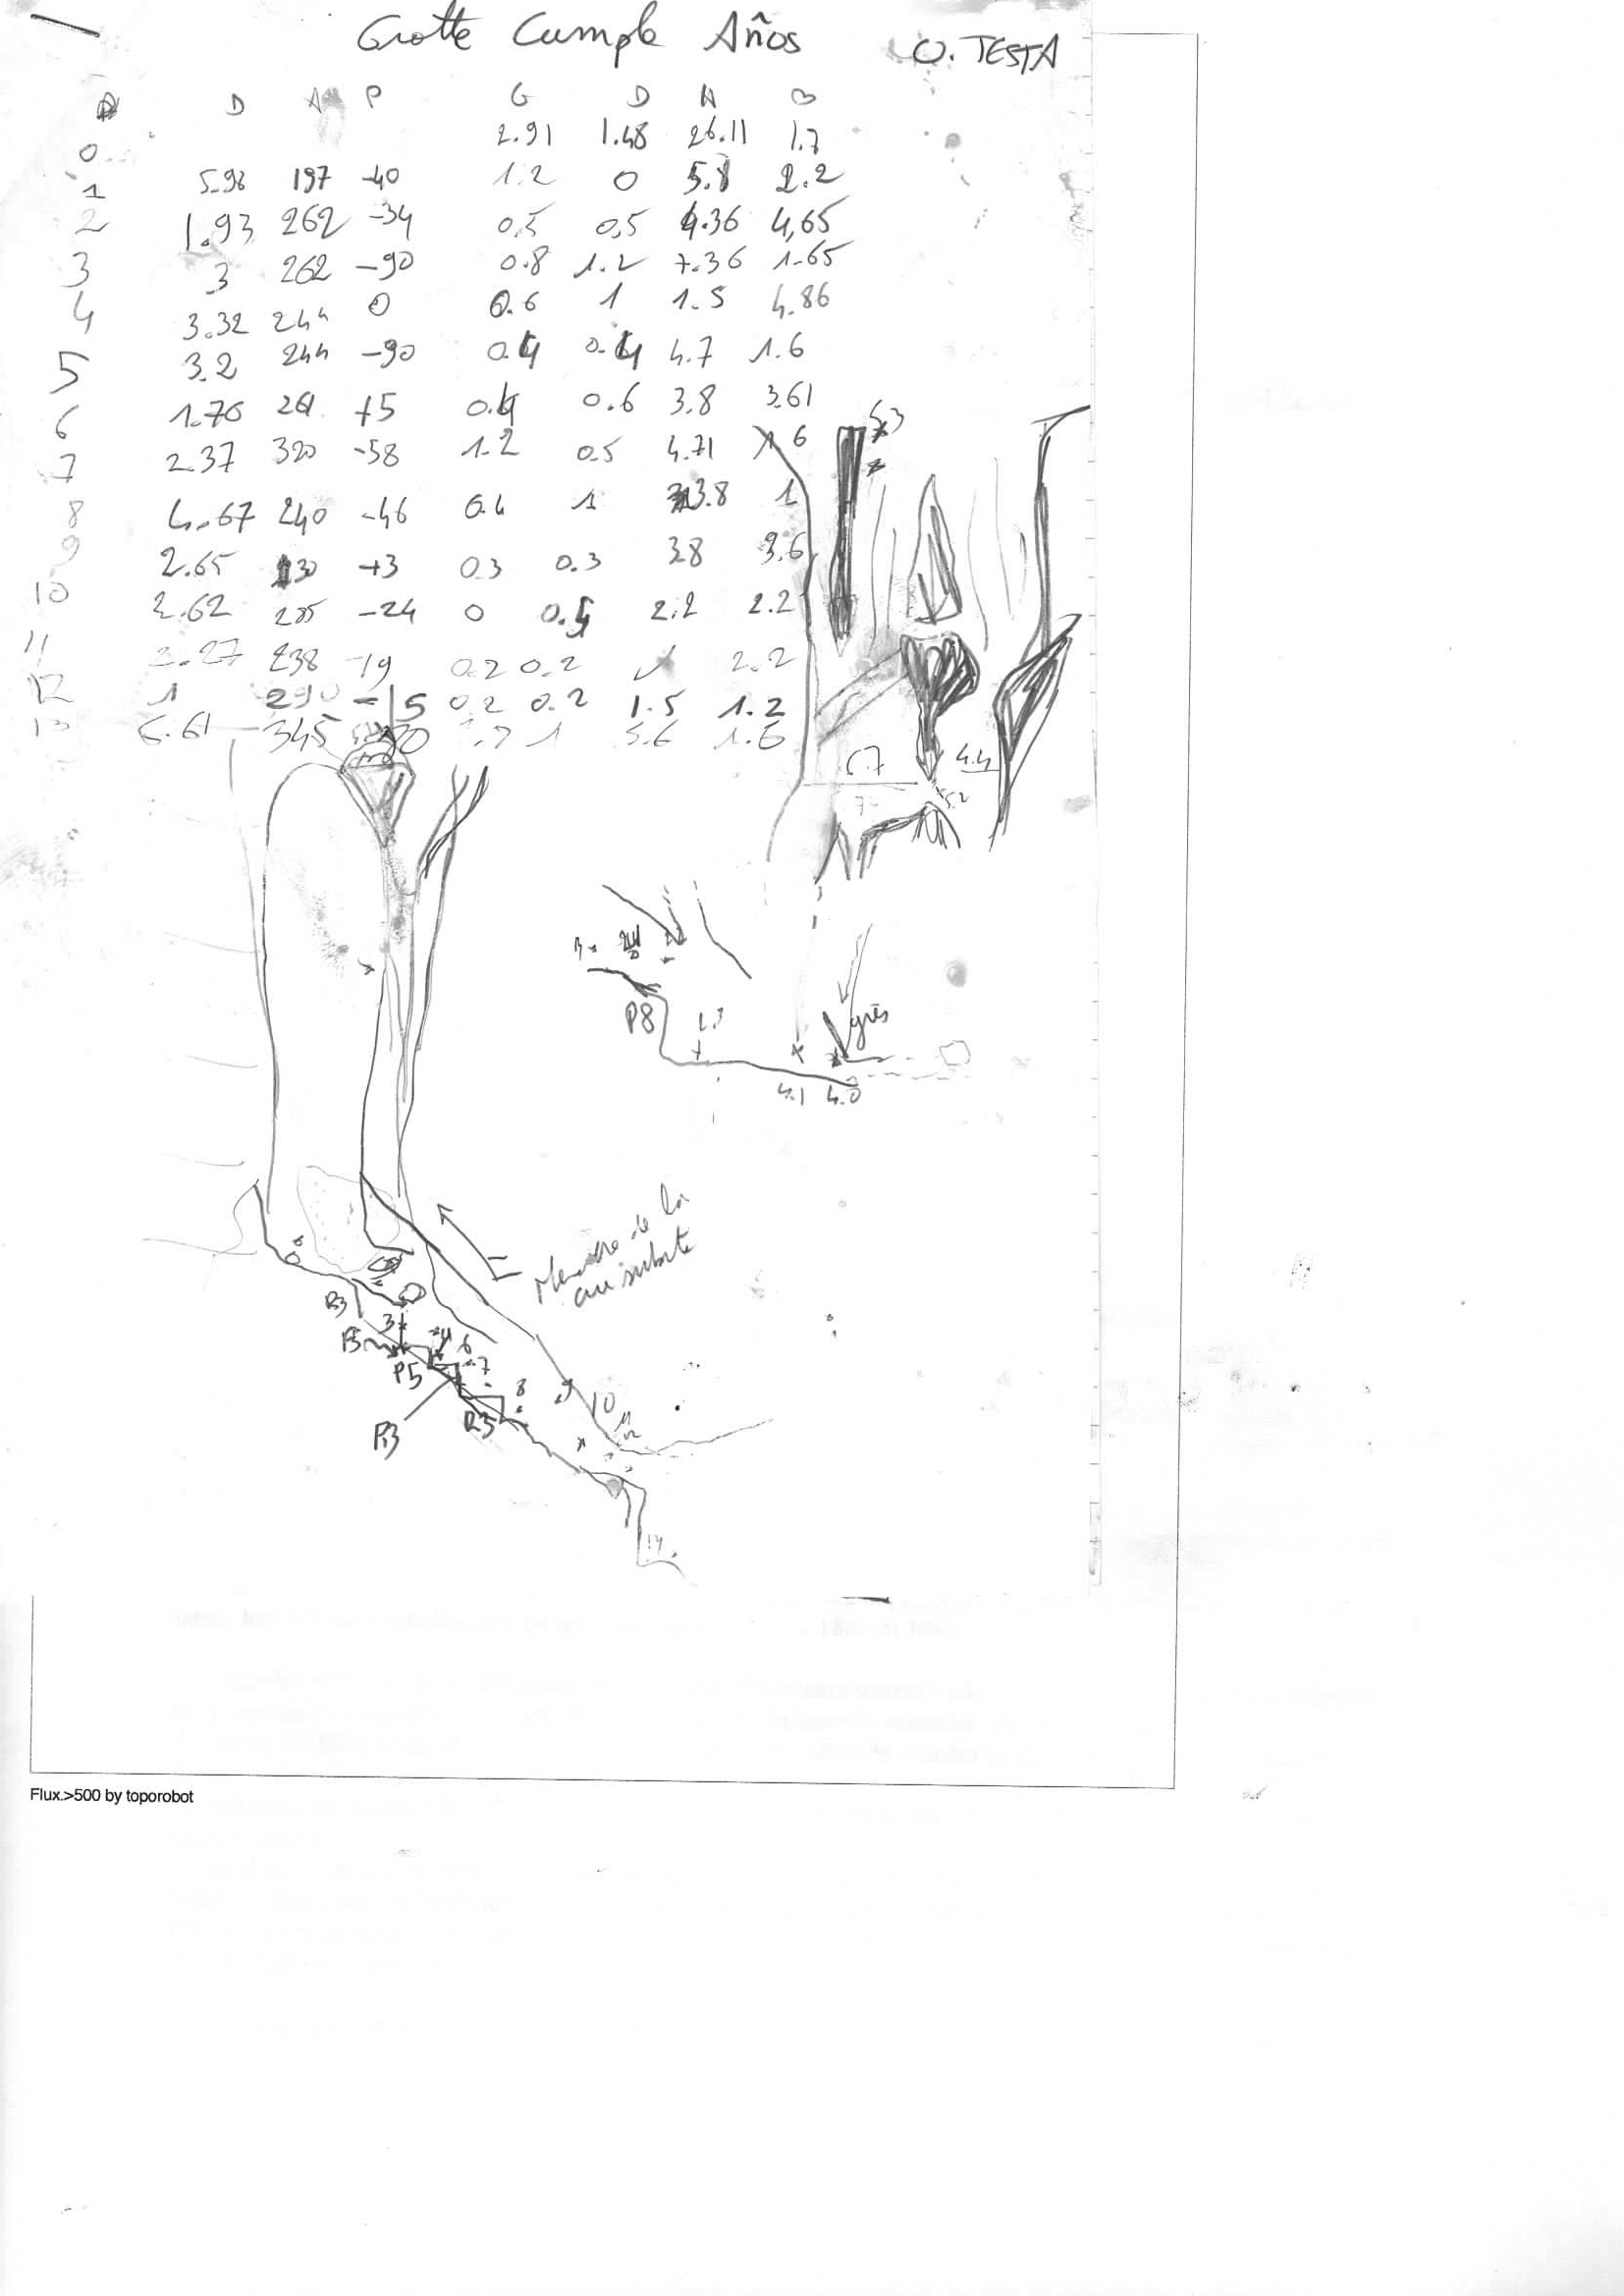 Grotte Cumple Años O. TESTA
D A P G D H B
0 2.91 1.48 26.11 1.7
1 5.98 197 -40 1.2 0 5.8 2.2
2 1.93 262 -34 0,5 0,5 4.36 4,65
3 3 262 -90 0.8 1.2 7.36 1.65
4 3.32 244 0 0.6 1 1.5 4.86
5 3.2 244 -90 0.4 0.4 4.7 1.6
6 1.76 261 +5 0.4 0.6 3.8 3.61
7 2.37 320 -58 1.2 0.5 4.71 6
8 4.67 240 -46 0.4 1 3.8 1
9 2.65 130 +3 0.3 0.3 3.8 3.6
10 2.62 285 -24 0 0.5 2.2 2.2
11 2.27 238 -19 0.2 0.2 1 2.2
12 1 290 -15 0.2 0.2 1.5 1.2
13 6.61 345 1 5.6 1.6
5.3
6.7 4.4
7 5.2
P8 1.3
grès
4.1 4.0
Méandre de la
R3
3
P5 6
7
8 9 10
R3
P3
14
Flux.>500 by toporobot